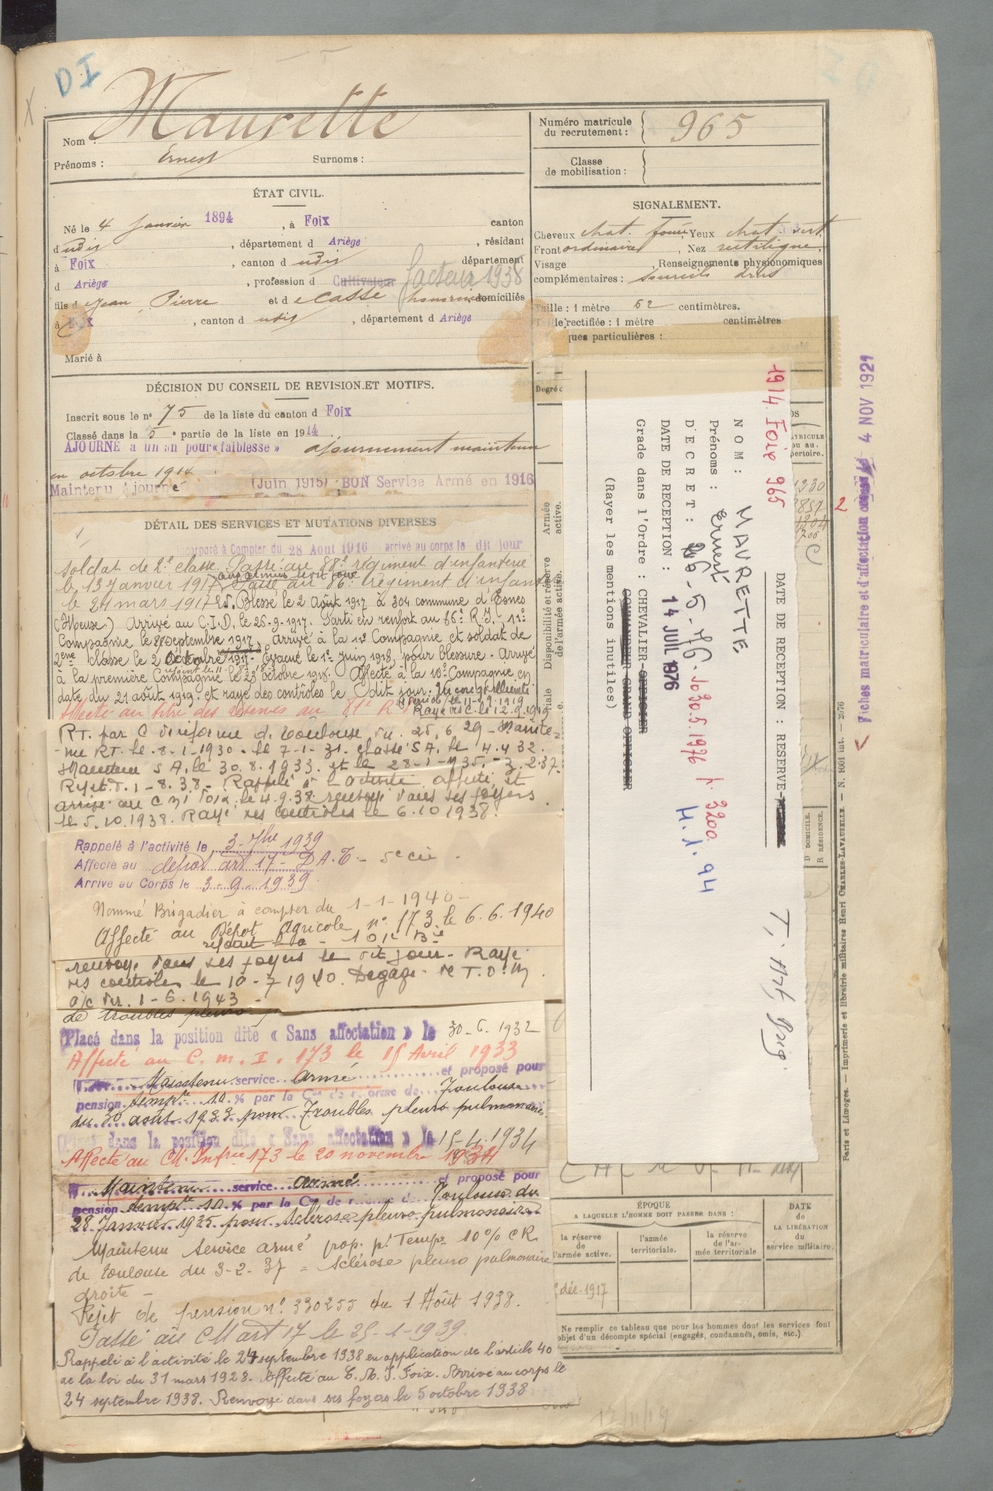 DI
Nom : Maurette
Prénoms : Ernest Surnoms :
Numéro matricule du recrutement : 965
Classe de mobilisation :
ÉTAT CIVIL.
Né le 4 Janvier 1894, à Foix canton
dudit, département d Ariège, résidant
à Foix, canton dudit département
d Ariège, profession d Cultivateur facteur 1938
fils d e Jean Pierre et d e Casse domiciliés
à Foix, canton dudit, département d Ariège
Marié à
SIGNALEMENT.
Cheveux chat. foncé Yeux chat. vert
Front ordinaire, Nez rectiligne
Visage , Renseignements physionomiques
complémentaires : sourcils drus
Taille : 1 mètre 62 centimètres.
Taille rectifiée : 1 mètre centimètres
ques particulières :
DÉCISION DU CONSEIL DE REVISION ET MOTIFS.
Inscrit sous le n° 75 de la liste du canton d Foix
Classé dans la 5e partie de la liste en 1914
AJOURNÉ à un an pour «faiblesse» ajournement maintenu
en octobre 1914
Maintenu ajourné (Juin 1915) - BON Service Armé en 1916
DÉTAIL DES SERVICES ET MUTATIONS DIVERSES
Incorporé à Compter du 28 Août 1916 arrivé au corps le dit jour
soldat de 2e classe. Passé au 88e régiment d'infanterie
le 13 janvier 1917. Passé au régiment d'infanterie
le 24 mars 1917. Blessé le 2 Août 1917 à 304 commune d'Esnes
(Meuse) Arrivé au C.I.D. le 26-9-1917. Parti en renfort au R.I. 11e
Compagnie le 28 septembre 1917, Arrivé à la Compagnie et soldat de
2ème classe le 2 Octobre 1917. Evacué le 1er Juin 1918, pour blessure. Arrivé
à la première Compagnie le 23 octobre 1918. Affecté à la 10e Compagnie en
date du 21 août 1919 et rayé des contrôles le dit jour.
Rayé des C. le 12.9.1919
Affecté au titre des réserves au R.I.
RT. par C. de réforme de Toulouse, du 25.6.29 - Mainte-
nu RT. le 8-1-1930 - le 7-1-31. classé S.A. le 4.4.32.
Maintenu S A. le 30.8.1933. et le 28-1-35. - 3.2.37.
Rejet T. 1-8.38. Rappelé à l'activité affecté et
arrivé au C M I Foix le 4.9.38 renvoyé dans ses foyers
le 5.10.1938. Rayé des contrôles le 6.10.1938.
Rappelé à l'activité le 3-7bre 1939
Affecté au dépôt art 17 - D.A.T. - 5e Cie.
Arrivé au Corps le 3-9-1939
Nommé Brigadier à compter du 1-1-1940
Affecté au Dépôt Agricole n° 173 le 6.6.1940
renvoyé dans ses foyers le dit jour. Rayé
des contrôles le 10-7-1940. Dégagé
a/c du 1-6-1943
de troubles pleuro
Placé dans la position dite « Sans affectation » le 30-6-1932
Affecté au C. m. I. 173 le 15 Avril 1933
Maintenu service armé et proposé pour
pension temp. 10 % par la Con de réforme de Toulouse
du 30 août 1933 pour Troubles pleuro pulmonaires
Placé dans la position dite « Sans affectation » le 15-4-1934
Affecté au C.M. Infrie 173 le 20 novembre 1934
Maintenu service armé et proposé pour
pension temp. 10 % par la Con de réforme de Toulouse du
28 Janvier 1935 pour Sclérose pleuro pulmonaire
Maintenu Service armé prop. pr Temp. 10% C R
de Toulouse du 3-2-37 = sclérose pleuro pulmonaire
droite -
Rejet de pension n° 330255 du 1 Août 1938.
Passé au C M art 17 le 25-1-1939.
Rappelé à l'activité le 24 septembre 1938 en application de l'article 40
de la loi du 31 mars 1928. Affecté au C. M. I. Foix. Arrivé au corps le
24 septembre 1938. Renvoyé dans ses foyers le 5 octobre 1938
1914 Foix 965
DATE DE RECEPTION : RESERVE
NOM : MAURETTE
Prénoms : Ernest
DECRET : 26-5-76 JO 30.5.1976 p. 3200
DATE DE RECEPTION : 14 JUIL 1976
Grade dans l'Ordre : CHEVALIER OFFICIER
COMMANDEUR GRAND OFFICIER
(Rayer les mentions inutiles)
4.1.94
Fiches matriculaire et d'affectation 4 NOV 1921
Armée active.
Disponibilité et réserve de l'armée active.
ÉPOQUE
A LAQUELLE L'HOMME DOIT PASSER DANS :
la réserve de l'armée active.
l'armée territoriale.
la réserve de l'armée territoriale
DATE de LA LIBÉRATION du service militaire.
déc. 1917
Ne remplir ce tableau que pour les hommes dont les services font
objet d'un décompte spécial (engagés, condamnés, omis, etc.)
Paris et Limoges. — Imprimerie et librairie militaires Henri CHARLES-LAVAUZELLE.
12/11/19